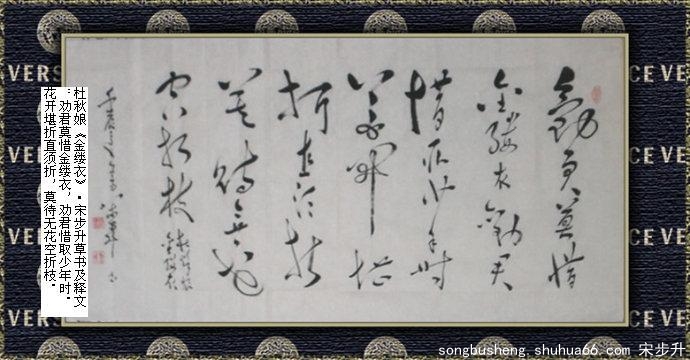 勸君莫惜
金縷衣勸君
惜取少年時
花開堪
折直須折
莫待無花
空折枝
杜秋娘《金缕衣》·宋步升草书及释文
：劝君莫惜金缕衣，劝君惜取少年时。
花开堪折直须折，莫待无花空折枝。
VERS
CE VE
CE VE
CE VE
CE VE
songbusheng.shuhua66.com 宋步升